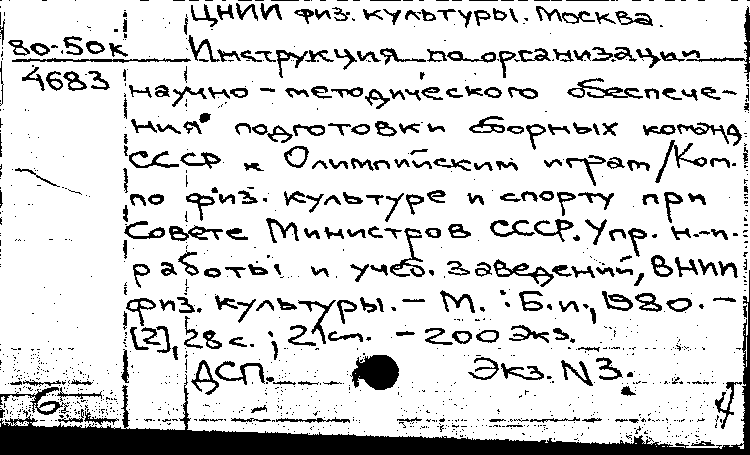 ЦНИИ физ. культуры. Москва.
80-50к
4683
Инструкция по организации
научно-методического обеспече-
ния подготовки сборных команд
СССР к Олимпийским играм/Ком.
по физ. культуре и спорту при
Совете Министров СССР. Упр. н.-и.
работы и учеб. заведений, ВНИИ
физ. культуры. - М. : Б.и., 1980. -
[2], 28 с. ; 21 см. - 200 экз.
ДСП. Экз. N 3.
6